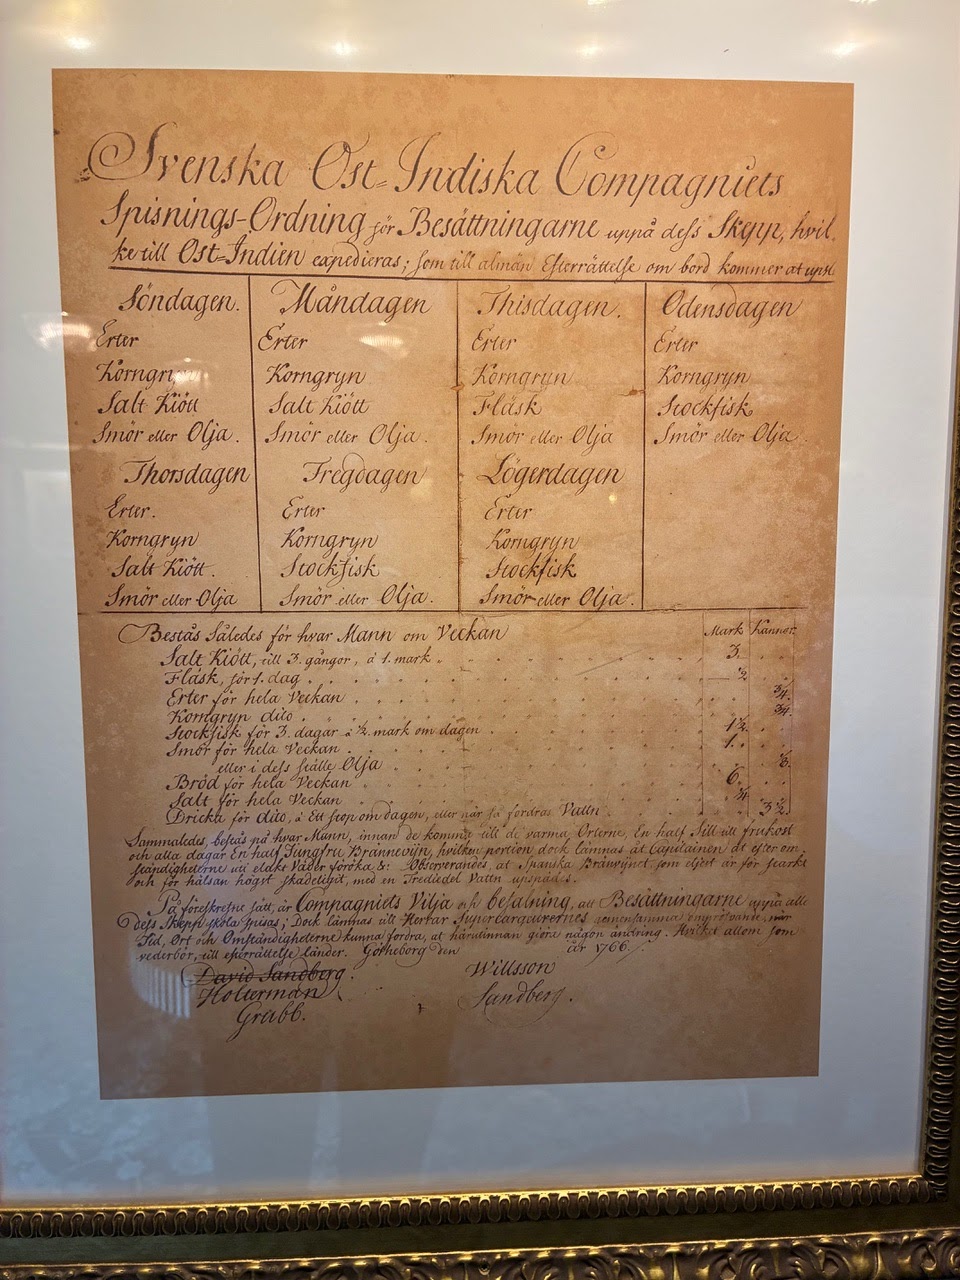 Svenska Ost-Indiska Compagniets
Spisnings-Ordning för Besättningarne uppå dess Skepp, hvil-
ke till Ost-Indien expedieras; som till almän Efterrättelse om bord kommer at upsl
Söndagen. Måndagen Thisdagen. Odensdagen
Erter Erter Erter Erter
Korngryn Korngryn Korngryn Korngryn
Salt Kiött Salt Kiött Fläsk Stockfisk
Smör eller Olja. Smör eller Olja. Smör eller Olja Smör eller Olja.
Thorsdagen Fregdagen Lögerdagen
Erter. Erter Erter
Korngryn Korngryn Korngryn
Salt Kiött. Stockfisk Stockfisk
Smör eller Olja Smör eller Olja. Smör eller Olja.
Bestås Således för hvar Mann om Veckan Mark Kannor.
Salt Kiött, till 3. gångor, á 1. mark 3.
Fläsk, för 1. dag ½
Erter för hela Veckan ¾.
Korngryn dito ¾.
Stockfisk för 3. dagar á ½ mark om dagen 1½
Smör för hela Veckan 1.
eller i dess ställe Olja
Bröd för hela Veckan 6.
Salt för hela Veckan
Dricka för dito, á Ett stop om dagen, eller när så fordras Vattn 3½
Sammaledes, bestås på hvar Mann, innan de komma till de varma Orterne, En half Sill till frukost
och alla dagar En half Jungfru Bränneviyn, hvilken portion dock lämnas åt Capitainen at efter om-
ständigheterne vid elakt Väder föröka &: Observerandes, at Spanska Bränvijnet, som eljest är för starkt
och för hälsan högst skadeligit, med en Trediedel Vattn upspädes.
På föreskrefne sätt, är Compagniets Vilja och befalning, att Besättningarne uppå alle
dess Skepp skola spisas; Dock lämnas till Herrar Supercargeurernes gemensamma empröfvande, när
Tid, Ort och Omständigheterne kunna fordra, at härutinnan giöra någon ändring. Hvilket allom som
vederbör, till efterrättelse länder. Götheborg den år 1766.
David Sandberg. Willsson
Holterman Sandberg.
Grubb.